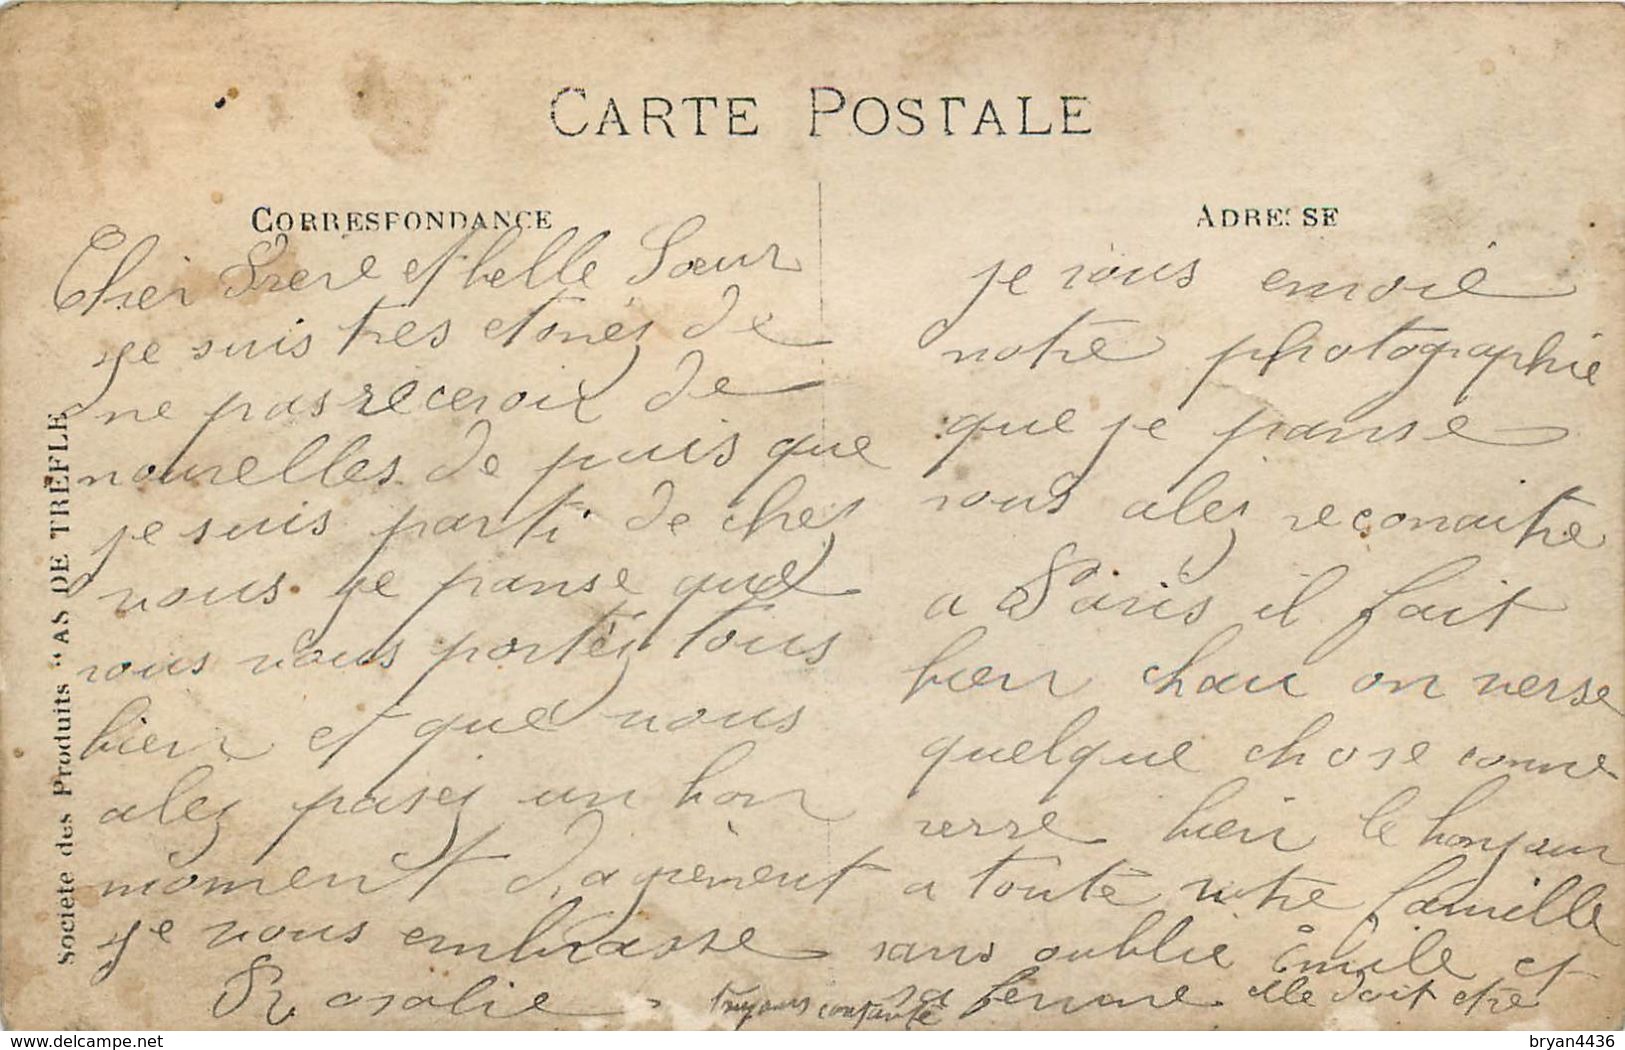 CARTE POSTALE
CORRESPONDANCE
Cher Frere et belle Sœur
je suis tres etonés de
ne pas reecevoir de
nouvelles de puis que
je suis parti de chez
vous je panse que
vous vous portéz tous
bien et que vous
alez pasez un bon
moment d'agrément
je vous embrasse
Rosalie
ADRESSE
je vous envoie
notre photographie
que je panse
vous alez reconaitre
a Paris il fait
bien chau on verse
quelque chose comme
verre bien le bonjour
a toute votre famille
sans oublie Émile et
sa femme elle doit etre
toujours contante
Société des Produits "AS DE TREFLE
delcampe.net
bryan4436